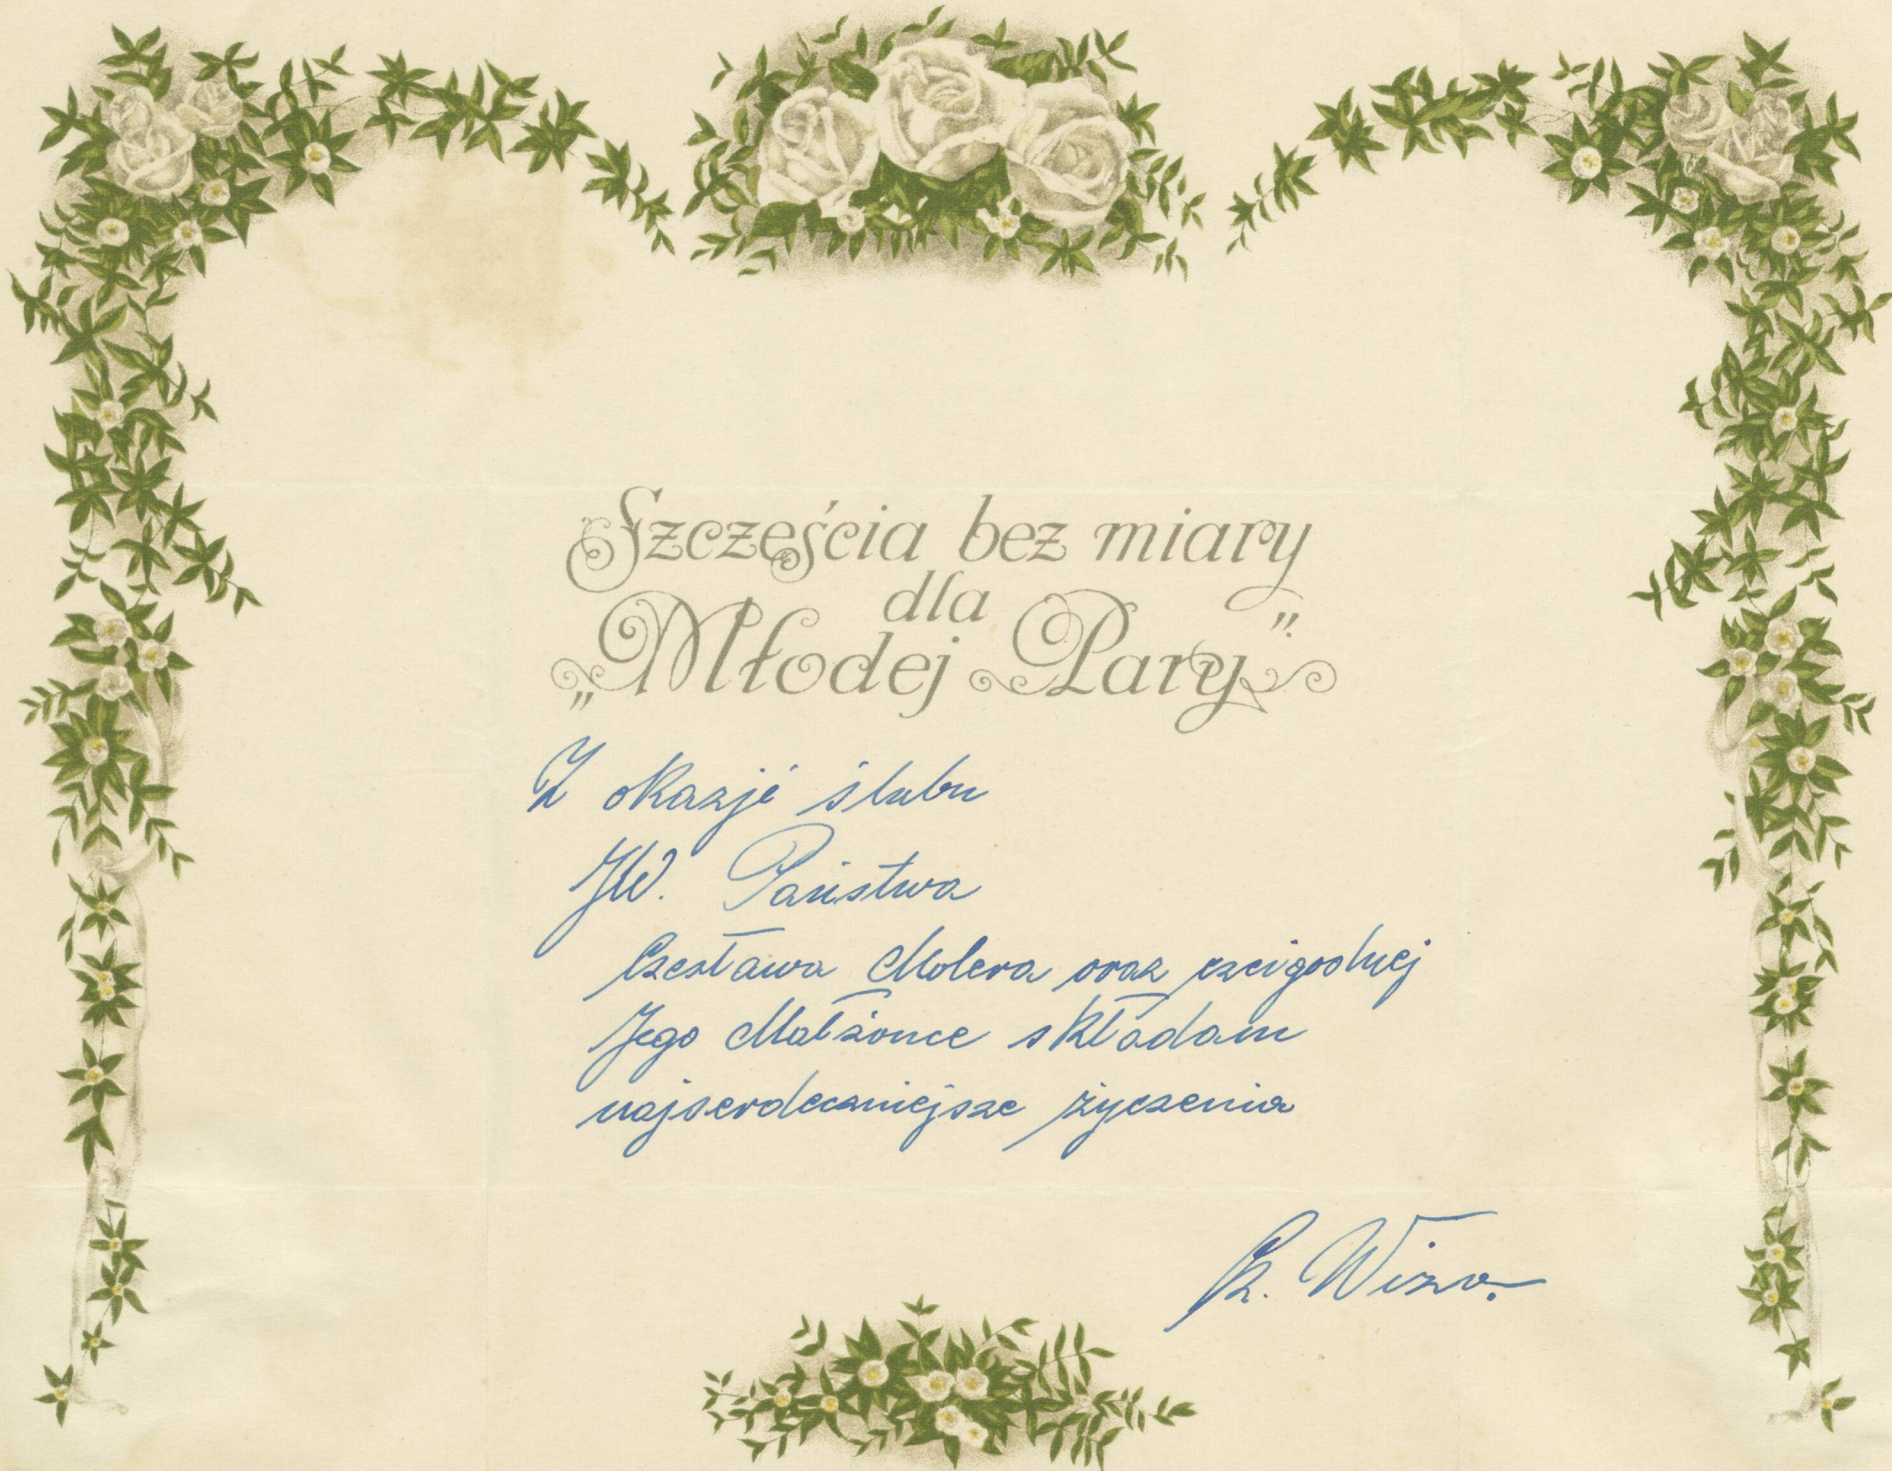 Szczęścia bez miary
dla
„Młodej Pary”
Z okazji ślubu
JW. Państwa
Czesława Molera oraz czcigodnej
Jego Małżonce składam
najserdeczniejsze życzenia
Cz.